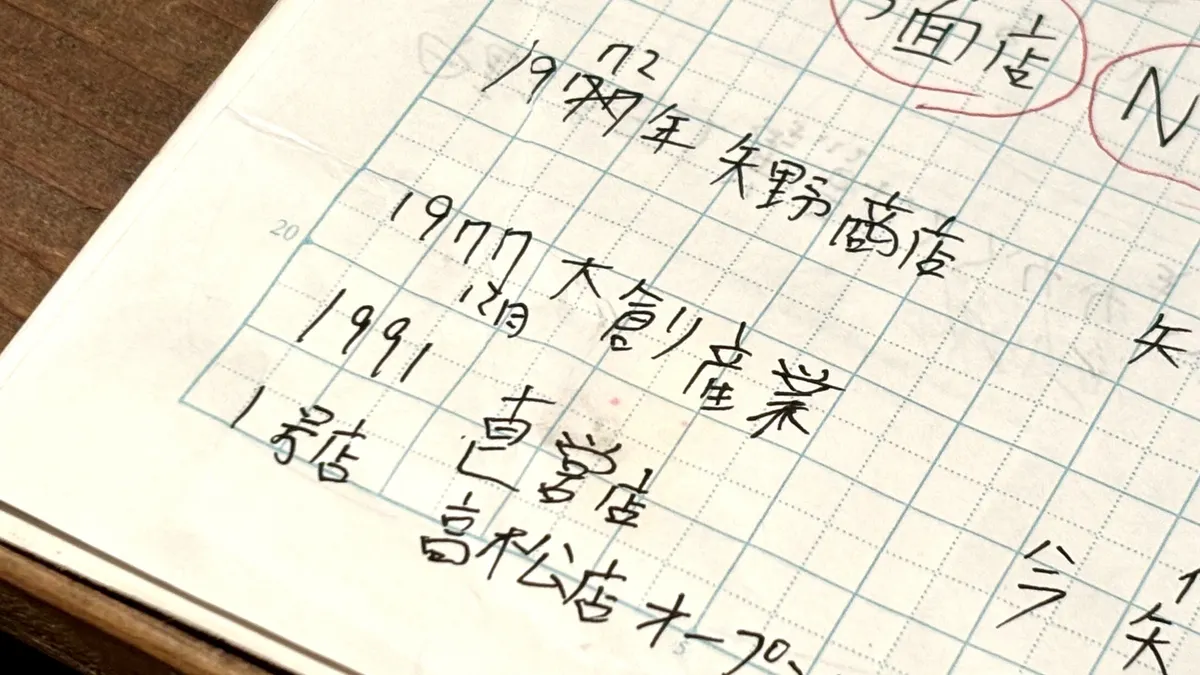 面店
N
1972年 矢野商店
1977 大創産業
12月
1991 直営店
1号店 高松店オープン
20
矢
今
矢